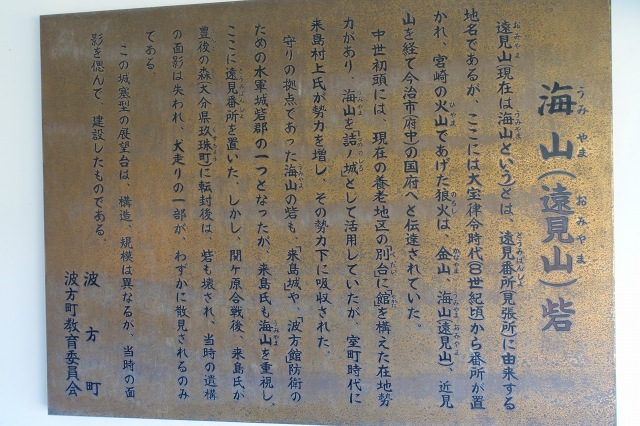 海山(遠見山)砦
うみやま おみやま
遠見山(現在は海山という)とは、遠見番所(見張所)に由来する
地名であるが、ここには大宝律令時代(8世紀頃)から番所が置
かれ、宮崎の火山であげた狼火は、金山、海山(遠見山)、近見
山を経て今治市(府中)の国府へと伝達されていた。
中世初頭には、現在の養老地区の「別台」に「館」を構えた在地勢
力があり、海山を詰ノ城として活用していたが、室町時代に
来島村上氏が勢力を増し、その勢力下に吸収された。
守りの拠点であった海山の砦も、「来島城」や、「波方館」防衛の
ための水軍城砦郡の一つとなったが、来島氏も海山を重視し、
ここに遠見番所を置いた。しかし、関ケ原合戦後、来島氏が
豊後の森(大分県玖珠町)に転封後は、砦も壊され、当時の遺構
の面影は失われ、犬走りの一部が、わずかに散見されるのみ
である
この城塞型の展望台は、構造、規模は異なるが、当時の面
影を偲んで、建設したものである。
波方町
波方町教育委員会